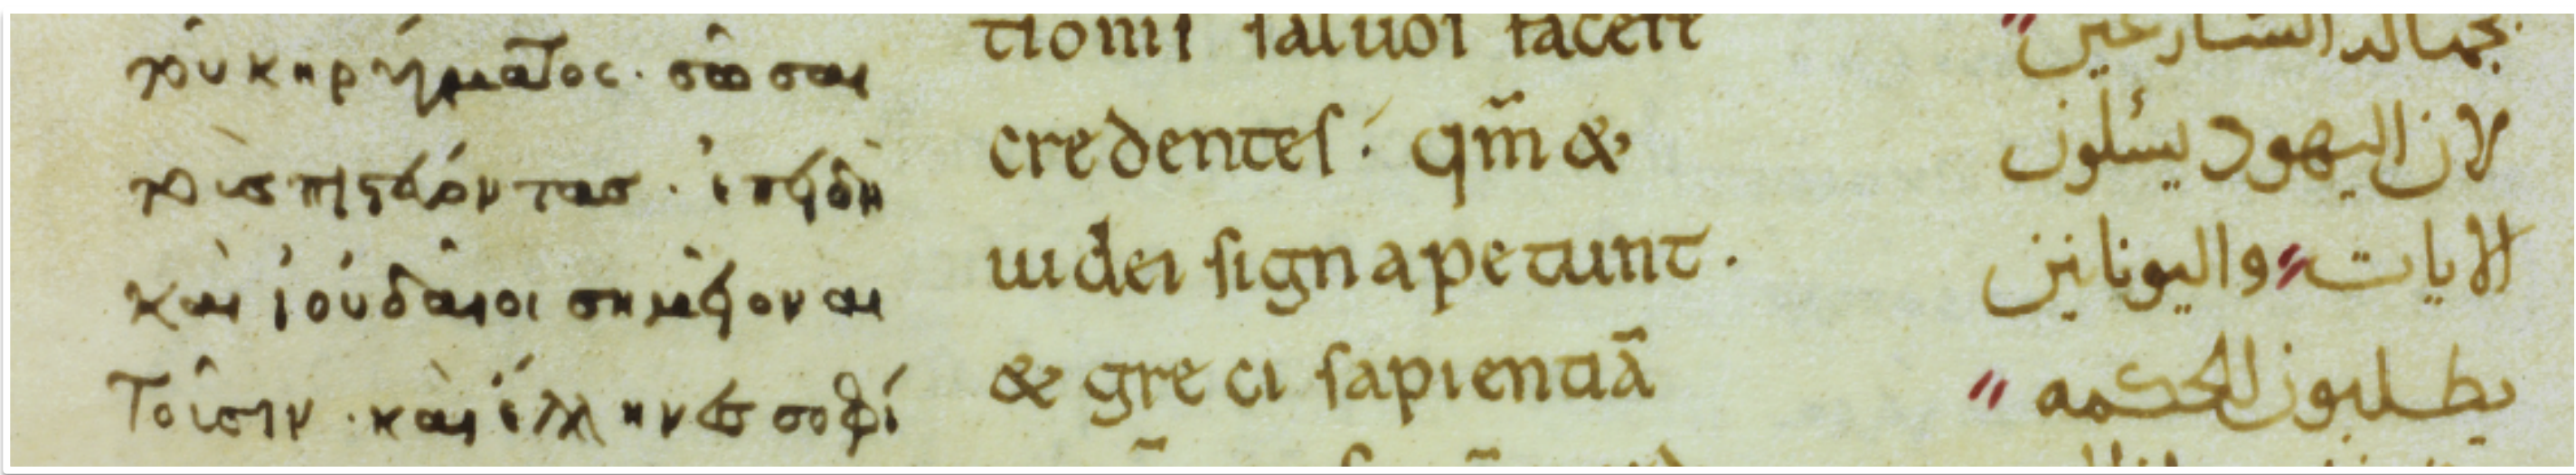 τοῦ κηρήγματος · σῶσαι
τοὺς πηστεύοντας · ἐπειδὴ
καὶ ἰουδαῖοι σημεῖον αι
τοῖσην · καὶ ἕλληνεσ σοφί
tioniſ ſaluoſ facere
credenteſ : qm̅ &
iudei ſigna petunt .
& greci ſapientiā
لان اليهود يسئلون
الايات واليونانين
يطلبون الحكمه